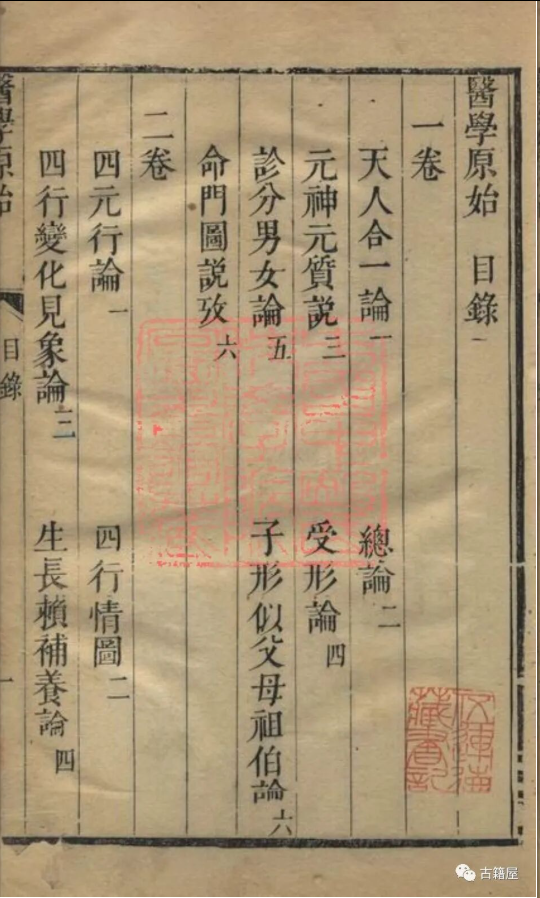 醫學原始 目錄
一卷
天人合一論 一 總論 二
元神元質説 三 受形論 四
診分男女論 五 子形似父母祖伯論 六
命門圖説攷 六
二卷
四元行論 一 四行情圖 二
四行變化見象論 三 生長賴補養論 四
醫學原始 目錄 一
藏書記
古籍屋